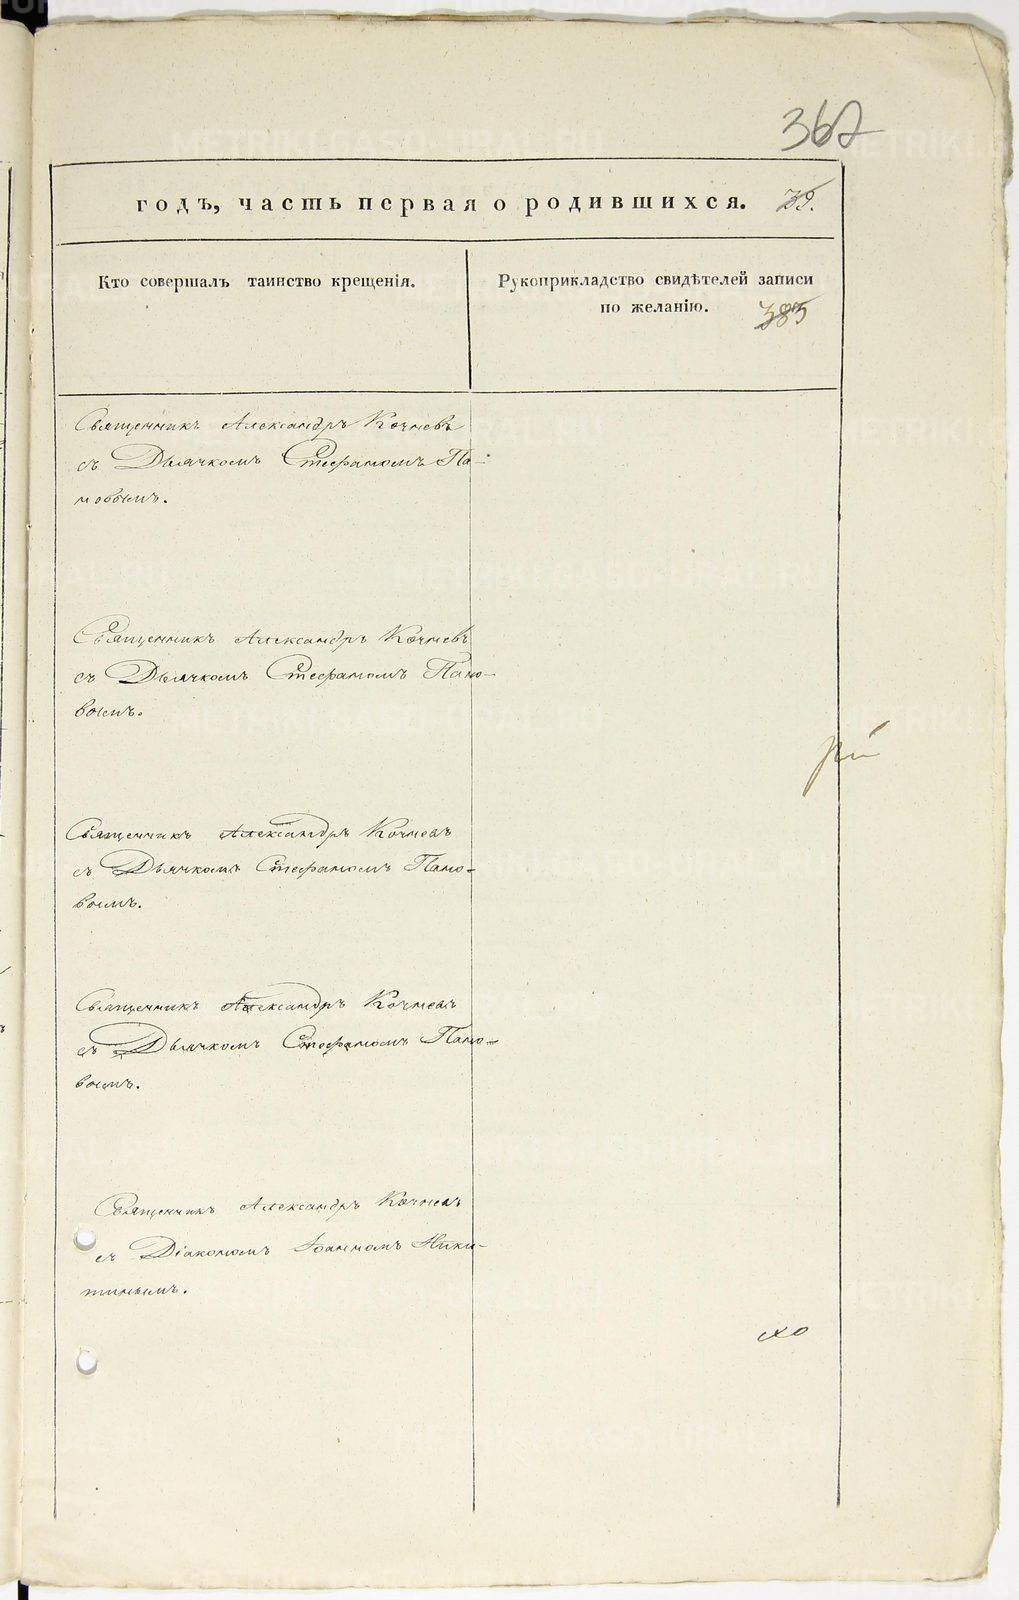 367
годъ, часть первая о родившихся. 39.
Кто совершалъ таинство крещенія.
Рукоприкладство свидѣтелей записи
по желанію. 385
Священникъ Александръ Кочневъ
съ Дьячкомъ Стефаномъ Па-
новымъ.
Священникъ Александръ Кочневъ
съ Дьячкомъ Стефаномъ Пано-
вымъ.
Священникъ Александръ Кочневъ
съ Дьячкомъ Стефаномъ Пано-
вымъ.
Священникъ Александръ Кочневъ
съ Дьячкомъ Стефаномъ Пано-
вымъ.
Священникъ Александръ Кочневъ
съ Діакономъ Іоанномъ Ники-
тинымъ.
METRIKI.GASO-URAL.RU